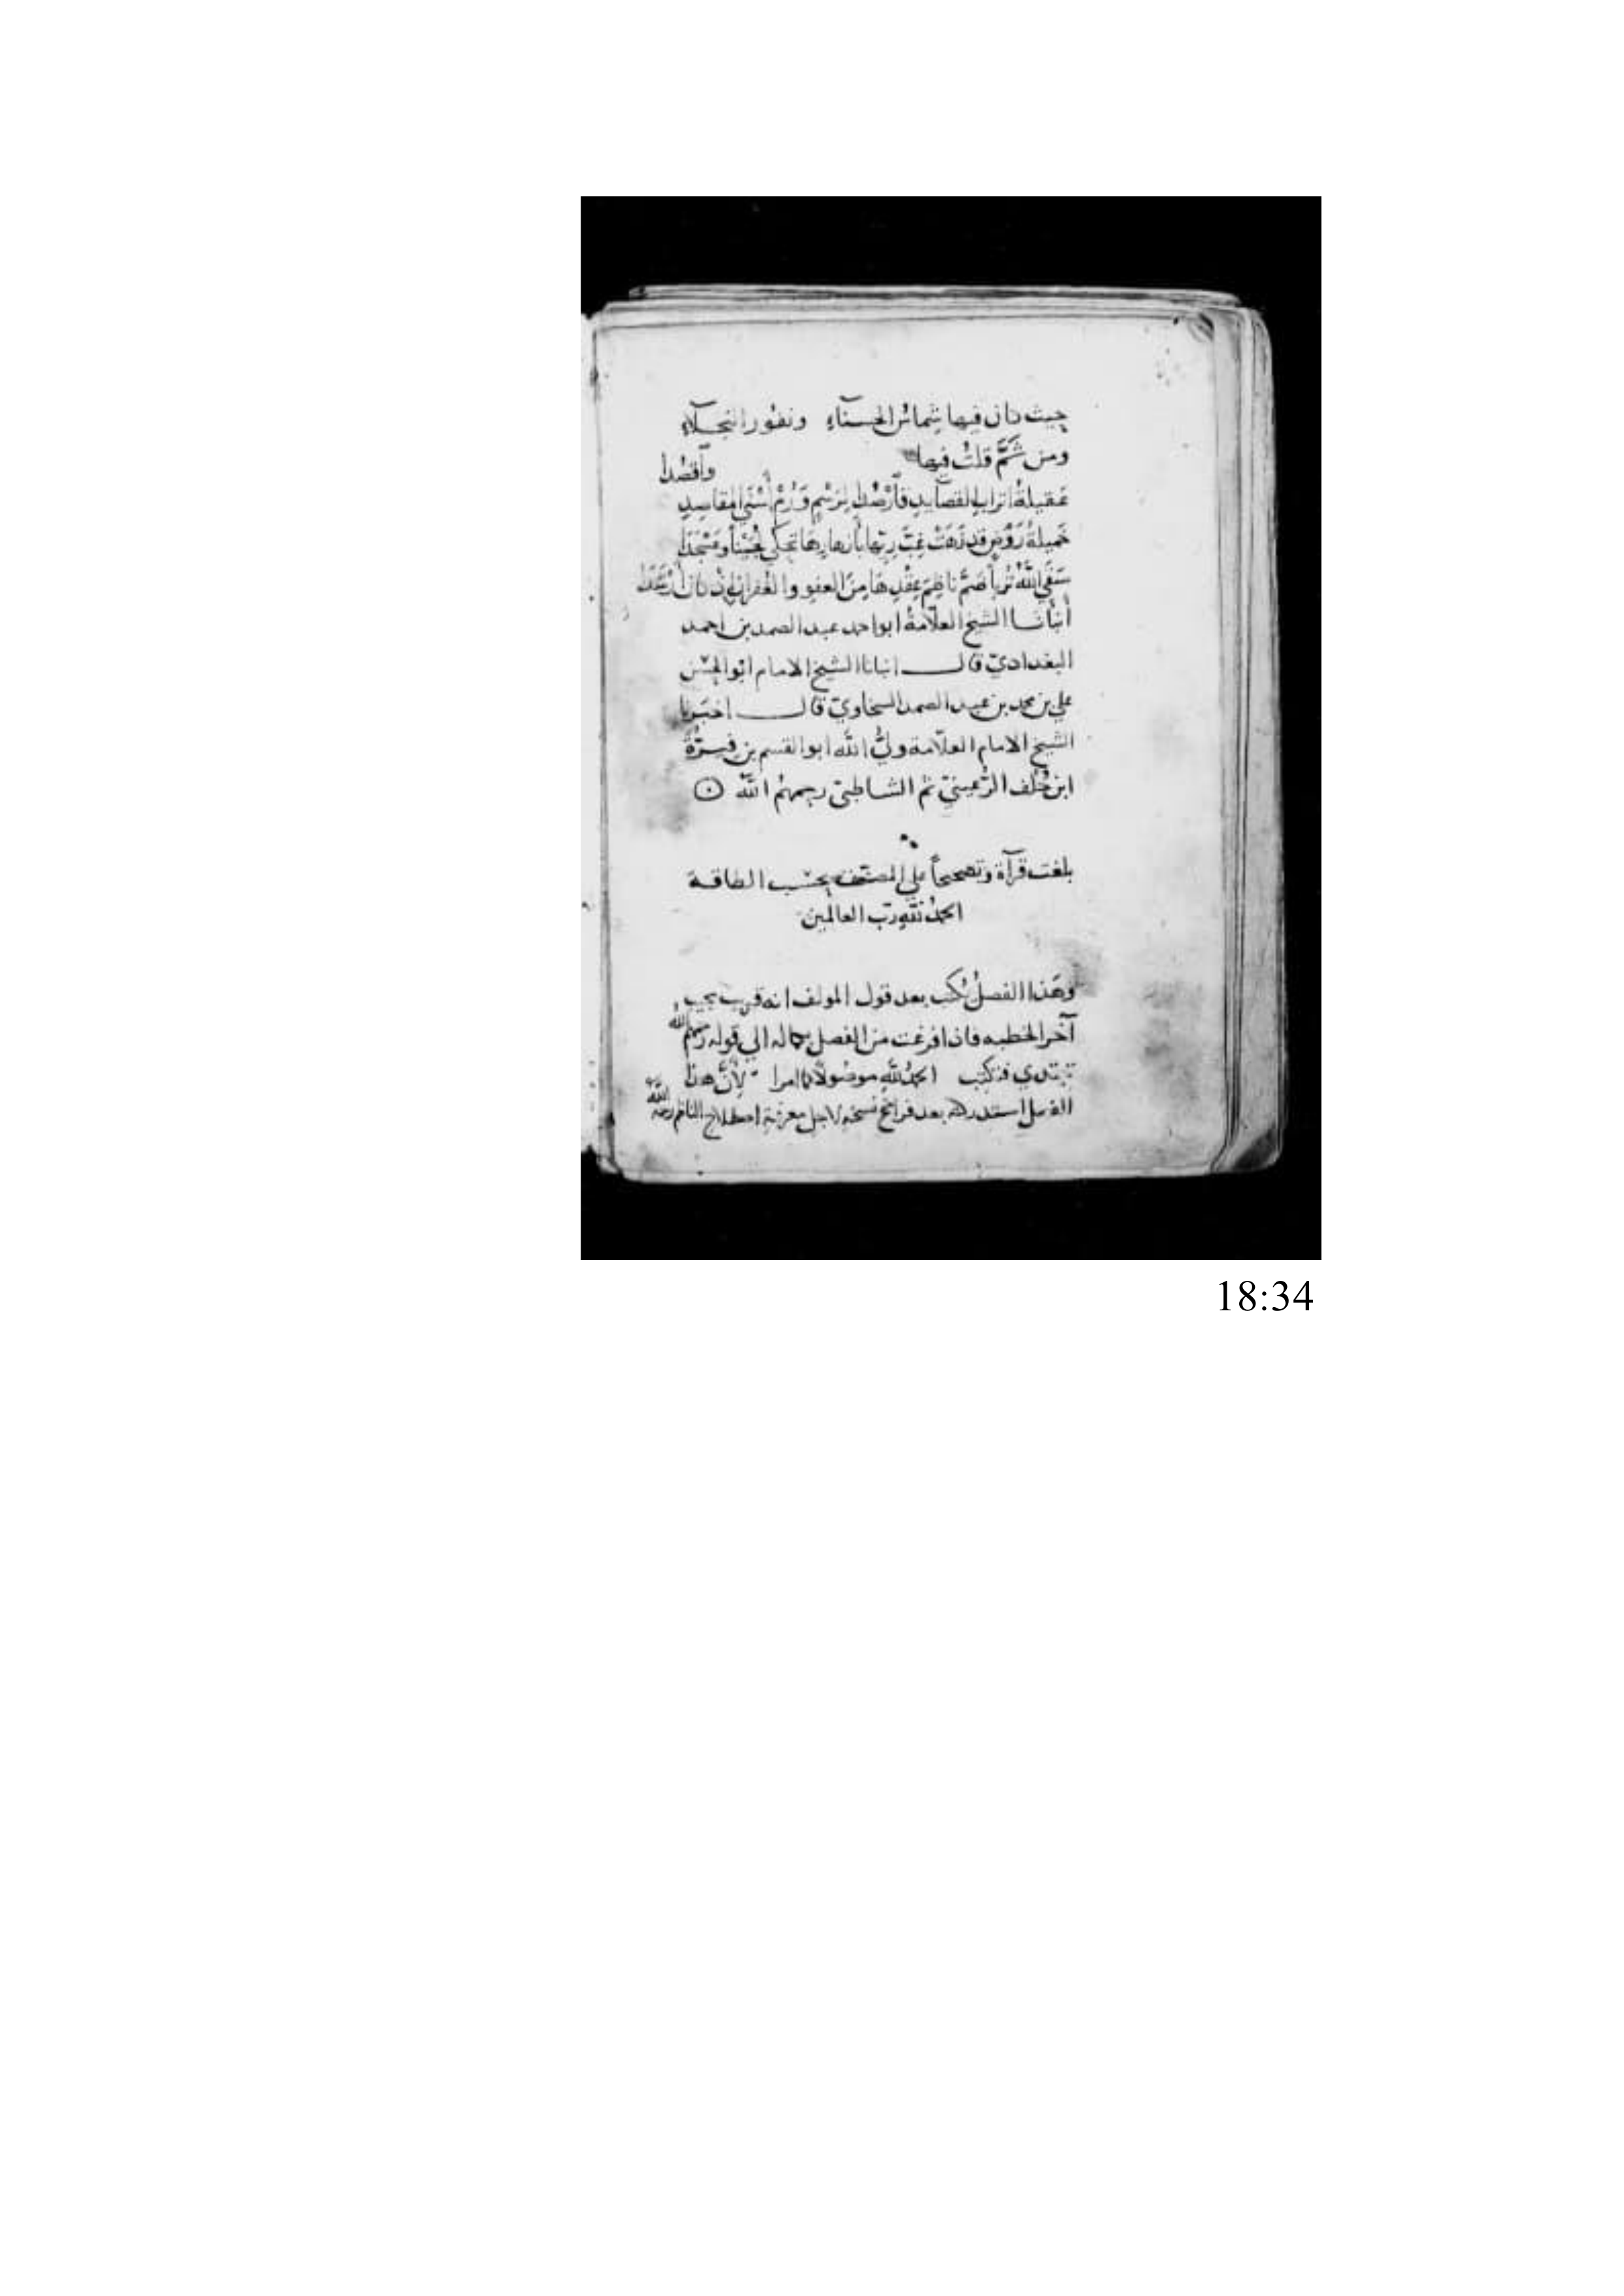 حيث كان فيها شمائل الحسناء ونفور النجلاء
ومن ثَمَّ قلتُ فيها
عقيلةُ اتراب القصايد فارصدا لِرَسْمٍ وَرُمْ أَسْنَى المقاصدِ وأقصُدا
خَميلةُ رَوْضٍ قد زَهَتْ غِبَّ رِيّها بأزهارِهَا تحكي لُجَيْناً وعَسْجَدَا
سَقَى اللهُ تُرباً ضَمَّ ناظِمَ عِقْدِهَا مِنَ العفوِ والغُفرانِ إذ كان أَرْغَدَا
أنبأنا الشيخ العلّامةُ ابو احمد عبد الصمد بن احمد
البغداديّ قال انبانا الشيخ الامام ابو الحسن
علي بن محمد بن عبد الصمد السخاويّ قال اخبرنا
الشيخ الامام العلّامة وليُّ الله ابو القسم بن فِيرُّهْ
ابن خَلف الرُّعينيّ ثم الشاطبيّ رحمهمُ الله
بلغت قرآة وتصحيحاً على المصنّف بحسب الطاقة
الحمدُ لله ربّ العالمين
وهَذا الفصلُ يُكتب بعد قول المولف انه قريب مجيب
آخر الخطبه فاذا فرغت من الفصل بكماله الي قوله رحمهم الله
تبتدي فتكتب الحمدُ للهِ موصُولًا كما امرا لِأنَّ هذا
الفصل استدركه بعد فراغ نسخه لاجل معرفة اصطلاح الناظم رحمه الله
18:34